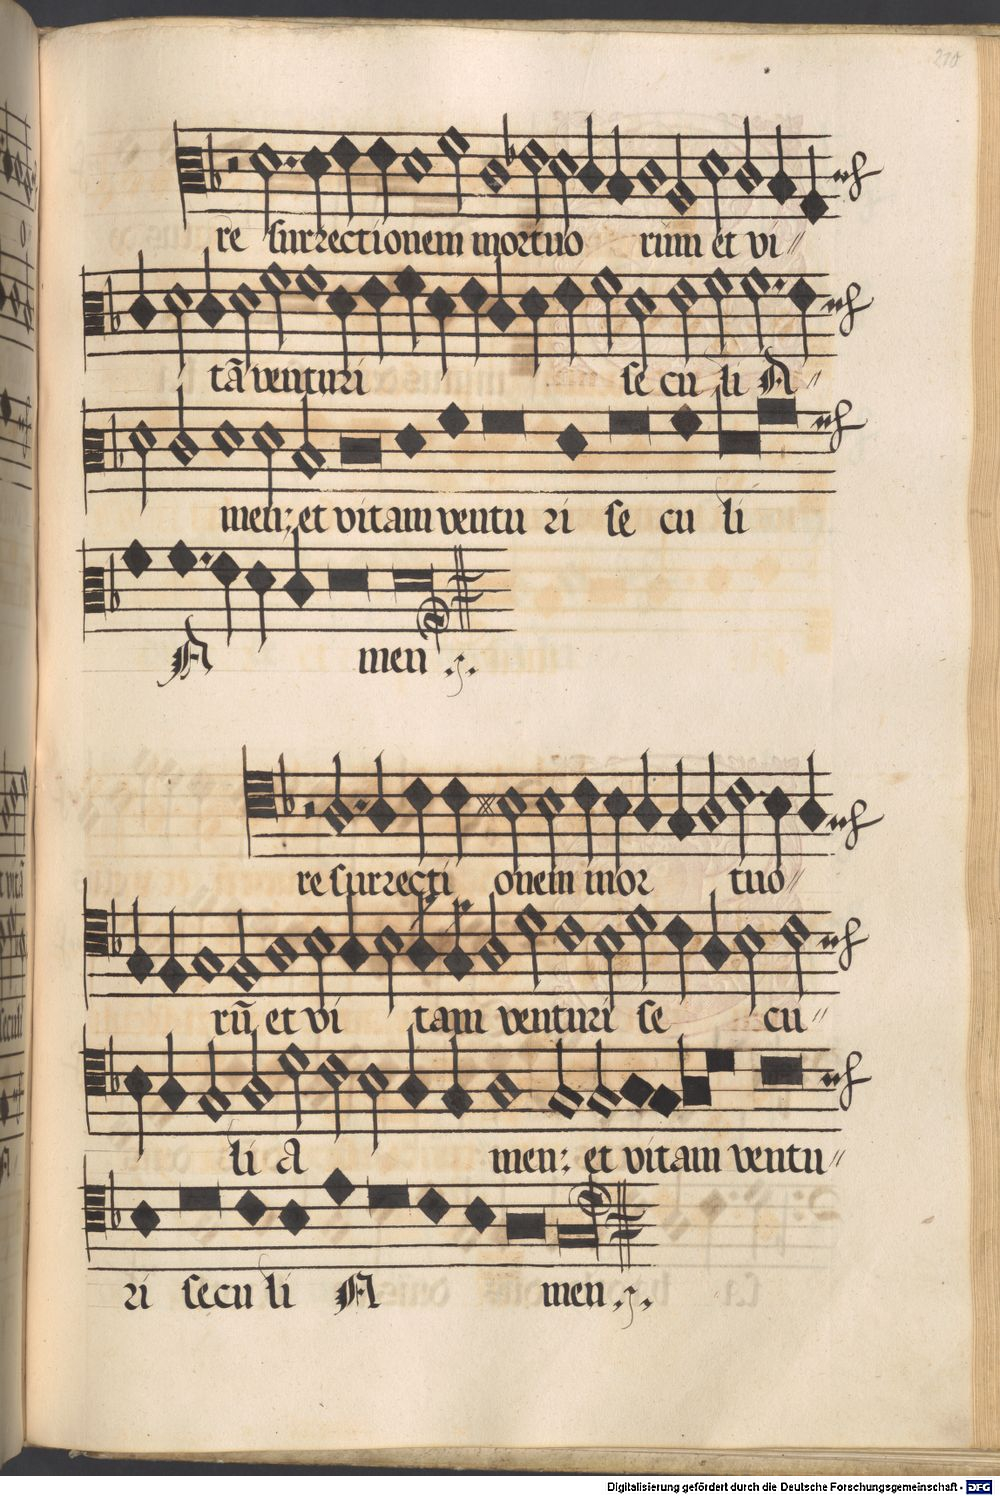 210
re surrectionem mortuo rum et vi //
tā venturi se cu li A //
men: et vitam ventu ri se cu li
A men
re surrecti onem mor tuo //
rū et vi tam venturi se cu //
li a men: et vitam ventu //
ri secu li A men
Digitalisierung gefördert durch die Deutsche Forschungsgemeinschaft - DFG